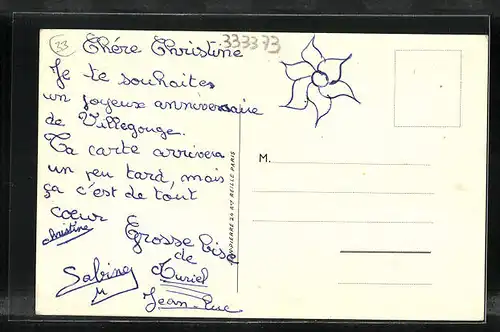 33
333373
Chére Christine
Je te souhaites
un joyeux anniversaire
de Villegouge.
Ta carte arrivera
un peu tard, mais
ça c'est de tout
cœur
Christine
Grosse bise
de
Sabine
Muriel
Jean-Luc
M.